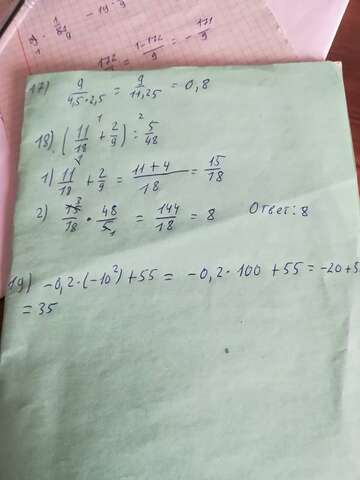 17) 9/(4,5·2,5) = 9/11,25 = 0,8
18). (11/18 + 2/9) : 5/48
1) 11/18 + 2/9 = (11+4)/18 = 15/18
2) 15/18 · 48/5 = 144/18 = 8 Ответ: 8
19) -0,2·(-10²)+55 = -0,2·100+55 = -20+5
= 35